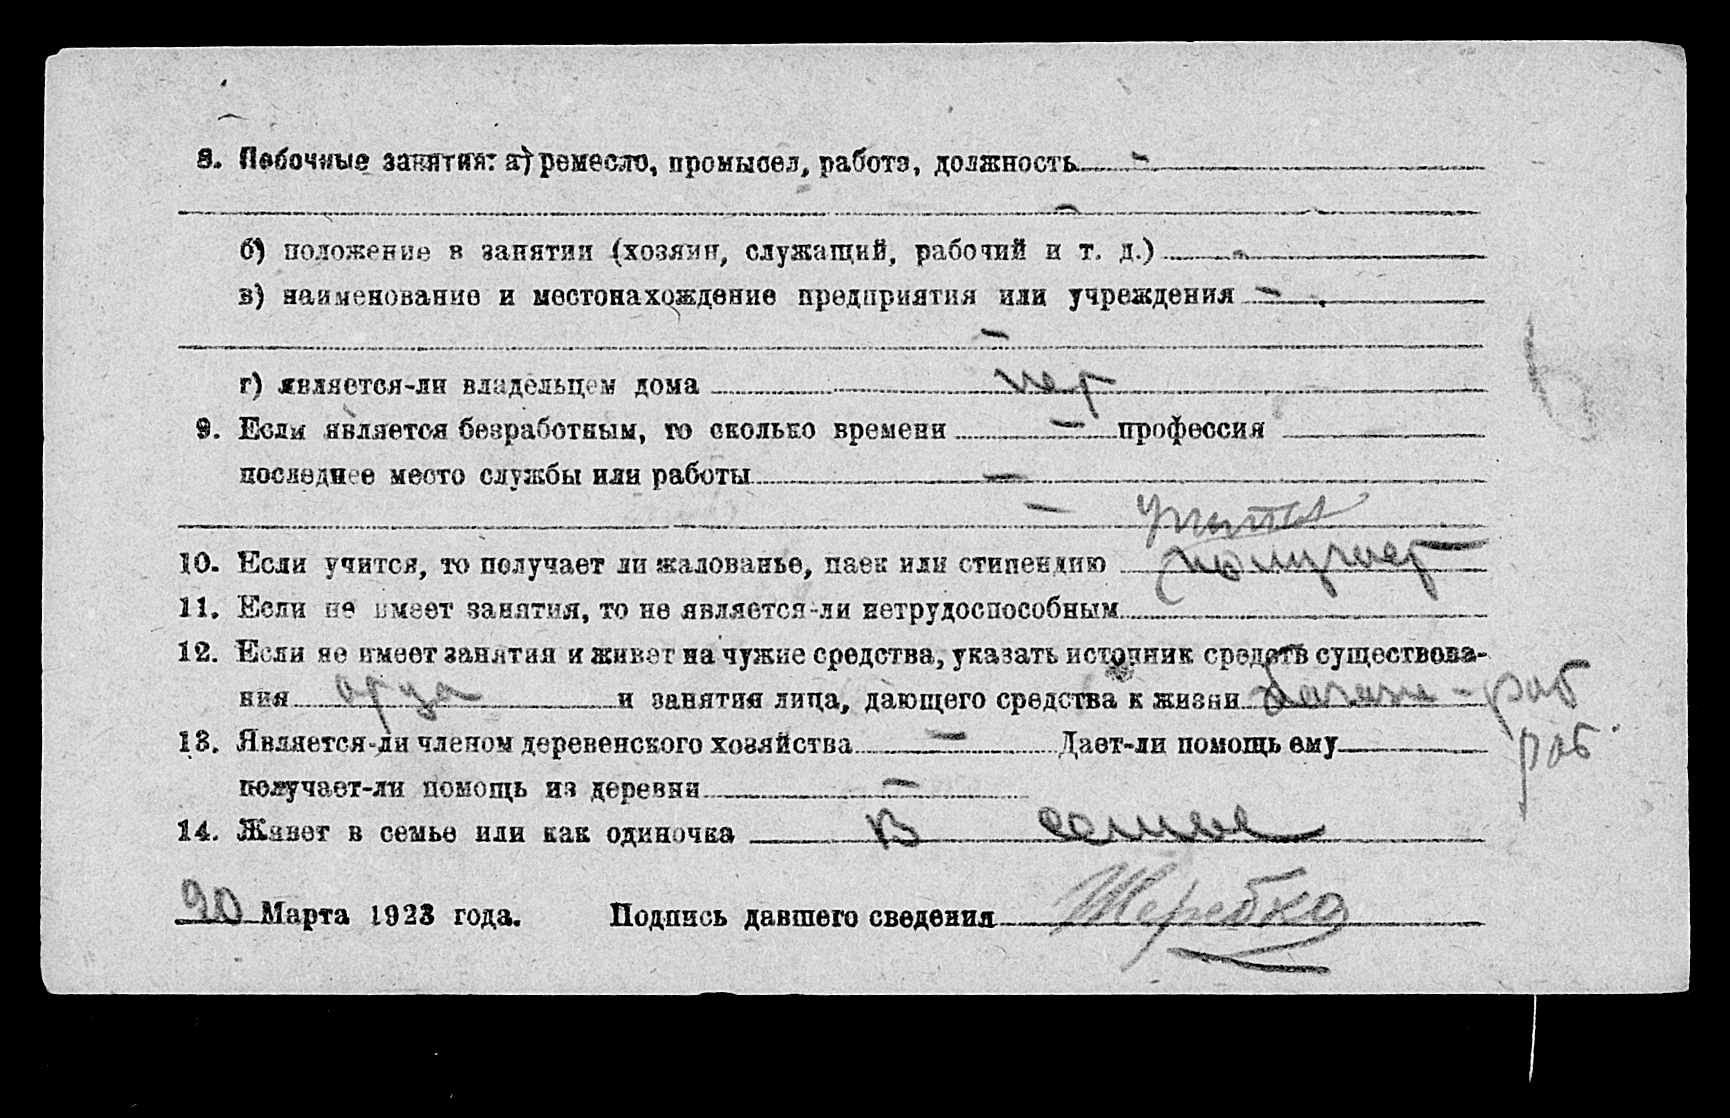 8. Побочные занятия: а) ремесло, промысел, работа, должность -
-
б) положение в занятии (хозяин, служащий, рабочий и т. д.) -
в) наименование и местонахождение предприятия или учреждения -
-
г) является-ли владельцем дома нет
9. Если является безработным, то сколько времени - профессия
последнее место службы или работы -
-
10. Если учится, то получает ли жалованье, паек или стипендию
11. Если не имеет занятия, то не является-ли нетрудоспособным
12. Если не имеет занятия и живет на чужие средства, указать источник средств существова-
ния отца и занятия лица, дающего средства к жизни раб
раб.
13. Является-ли членом деревенского хозяйства - Дает-ли помощь ему
получает-ли помощь из деревни -
14. Живет в семье или как одиночка в семье
20 Марта 1923 года. Подпись давшего сведения Жеребко